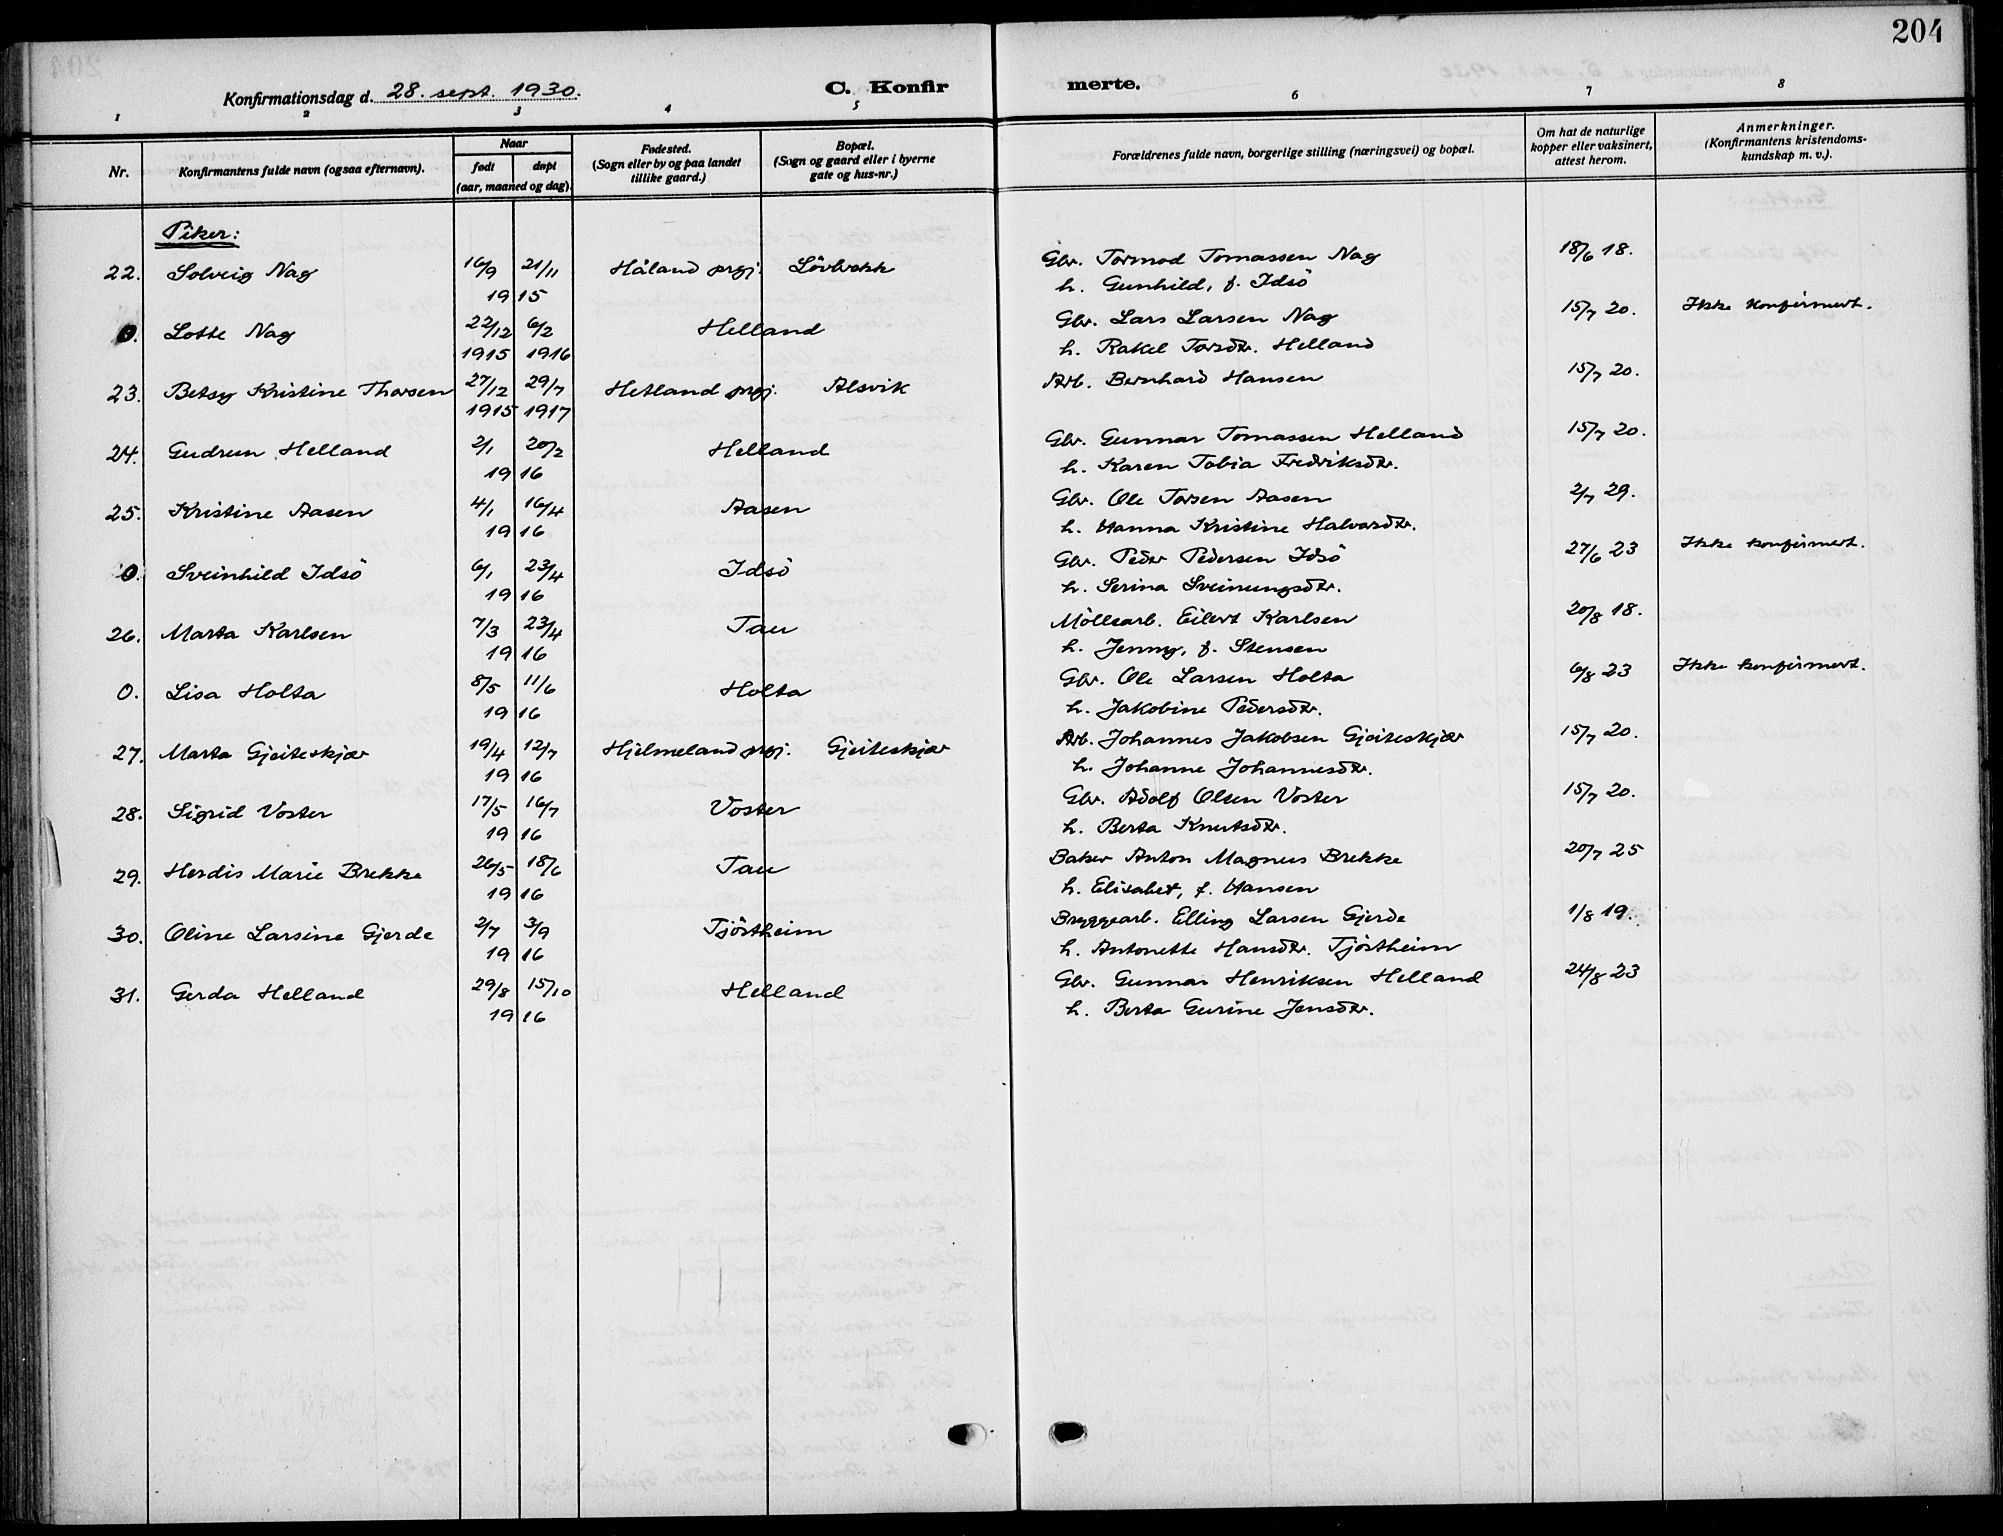 204
Konfirmationsdag d. 28. sept. 1930.
C. Konfirmerte.
1 2 3 4 5 6 7 8
Nr.
Konfirmantens fulde navn (ogsaa efternavn).
Naar
født døpt
(aar, maaned og dag)
Fødested.
(Sogn eller by og paa landet
tillike gaard.)
Bopæl.
(Sogn og gaard eller i byerne
gate og hus-nr.)
Forældrenes fulde navn, borgerlige stilling (næringsvei) og bopæl.
Om hat de naturlige
kopper eller vaksinert,
attest herom.
Anmerkninger.
(Konfirmantens kristendoms-
kundskap m. v.).
Piker:
22. Solveig Nag 16/9 21/11 Håland prgj. Lövbrekk Gbr. Tormod Tomassen Nag 18/6 18.
1915 h. Gunhild, f. Idsö
0. Lotte Nag 22/12 6/2 Helland Gbr. Lars Larsen Nag 15/7 20. Ikke konfirmert.
1915 1916 h. Rakel Torsdtr. Helland
23. Betsy Kristine Thorsen 27/12 29/7 Hetland prgj. Alsvik Arb. Bernhard Hansen 15/7 20.
1915 1917
24. Gudrun Helland 2/1 20/2 Helland Gbr. Gunnar Tomassen Helland 15/7 20.
1916 h. Karen Tobia Fredriksdtr.
25. Kristine Aasen 4/1 16/4 Aasen Gbr. Ole Torsen Aasen 2/7 29.
1916 h. Hanna Kristine Halvardtr.
0. Sveinhild Idsö 6/1 23/4 Idsö Gbr. Peder Pedersen Idsö 27/6 23 Ikke konfirmert.
1916 h. Serina Sveinungsdtr.
26. Marta Karlsen 7/3 23/4 Tau Möllearb. Eilert Karlsen 20/8 18.
1916 h. Jenny, f. Stensen
0. Lisa Holta 8/5 11/6 Holta Gbr. Ole Larsen Holta 6/8 23 Ikke konfirmert.
1916 h. Jakobine Pedersdtr.
27. Marta Gjeiteskjær 19/4 12/7 Hjelmeland prgj. Gjeiteskjær Arb. Johannes Jakobsen Gjeiteskjær 15/7 20.
1916 h. Johanne Johannesdtr.
28. Sigrid Voster 17/5 16/7 Voster Gbr. Adolf Olsen Voster 15/7 20.
1916 h. Berta Knutsdtr.
29. Herdis Marie Brekke 26/5 18/6 Tau Baker Anton Magnus Brekke 20/7 25
1916 h. Elisabet, f. Hansen
30. Oline Larsine Gjerde 2/7 3/9 Tjöstheim Bryggearb. Elling Larsen Gjerde 1/8 19.
1916 h. Antonette Hansdtr. Tjöstheim
31. Gerda Helland 29/8 15/10 Helland Gbr. Gunnar Henriksen Helland 24/8 23
1916 h. Berta Gurine Jensdtr.